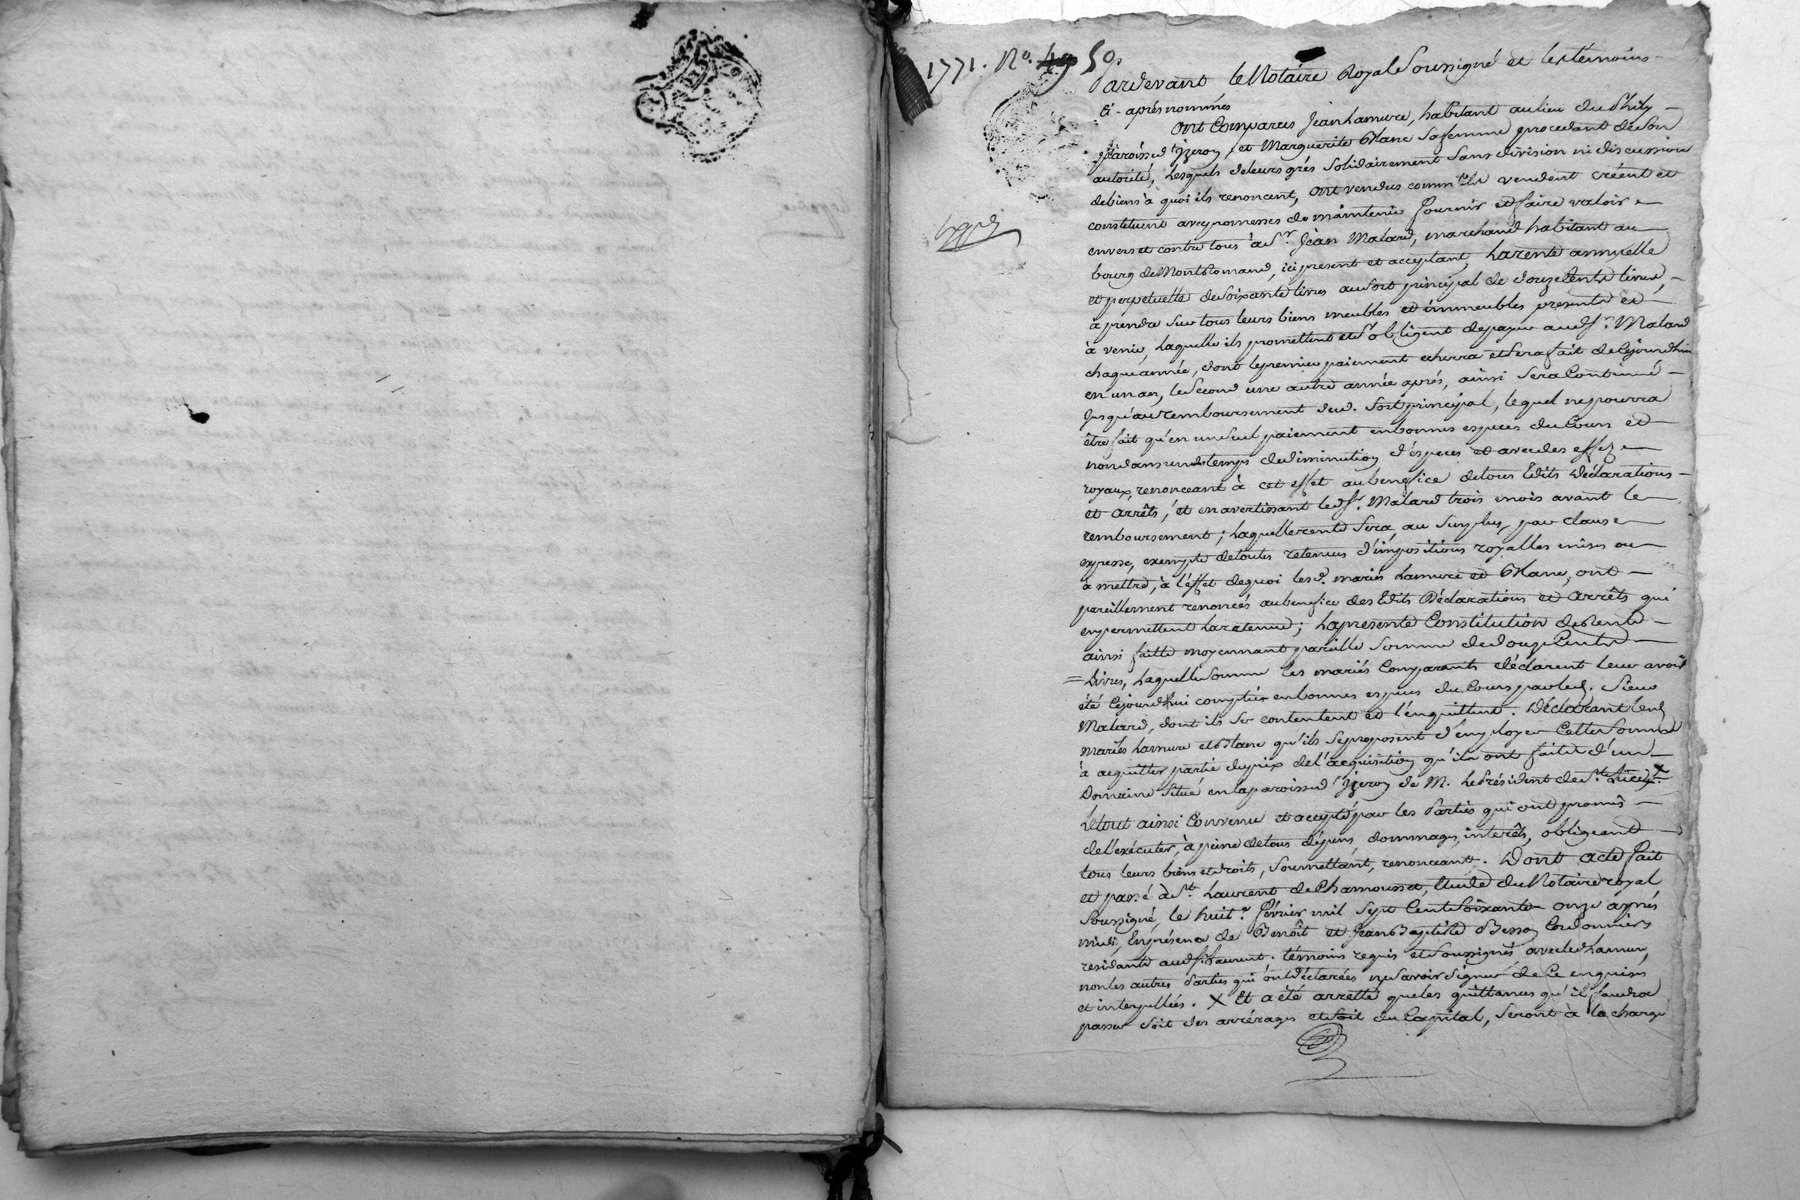 1771. N°. 49 50.
Pardevant le Notaire Royal Soussigné et les témoins
Ci-après nommés
Ont Comparus Jean Lamure, habitant au lieu du Phily
Paroisse d'Yzeron, et Marguerite Blanc sa femme procedant de Son
autorité, Lesquels de leurs grés Solidairement Sans division ni discussion
de biens à quoi ils renoncent, ont vendus comm'ils vendent créent et
constituent avec promesses de maintenir fournir et faire valoir
envers et contre tous à Sr. Jean Malard, marchand habitant au
bourg de Montromand, ici present et acceptant, La rente annuelle
et perpetuelle de Soixante livres au Sort principal de douze Cents livres,
à prendre Sur tous leurs biens meubles et immeubles presents et
à venir, Laquelle ils promettent et S'obligent de payer aud. Sr. Malard
chaque année, dont le premier paiement echerra et Sera fait de Cejourdhui
en un an, le Second une autre année après, ainsi Sera Continué
Jusqu'au remboursement dud. Sort principal, lequel ne pourra
être fait qu'en un Seul paiement en bonnes especes du Cours et
non dans un temps de diminution d'éspeces et avec des effets
royaux, renonceant à cet effet au benefice de tous Edits Déclarations
et Arrêts, et en avertissant led. Sr. Malard trois mois avant le
remboursement; Laquelle rente Sera au Surplus, par clause
expresse, exempte de toutes retenues d'impositions royalles mises ou
à mettre, à l'effet de quoi lesd. mariés Lamure et Blanc, ont
pareillement renoncés au benefice des Edits Déclarations et Arrêts qui
en permettent La retenue; La presente Constitution de rente
ainsi faitte moyennant pareille Somme de douze Cents
= Livres, Laquelle Somme les mariés Comparants déclarent leur avoir
été Cejourdhui comptée en bonnes especes du Cours par led. Sieur
Malard, dont ils Se contentent et l'enquittent. Déclarant lesd.
mariés Lamure et Blanc qu'ils Se proposent d'employer Cette Somme
à acquitter partie du prix de l'acquisition qu'ils ont faite d'un
Domaine Situé en la paroisse d'Yzeron de M. Le Président de
Le tout ainsi Convenu et accepté par les Parties qui ont promis
de l'exécuter, à peine de tous dépens, dommages, interêts, obligeant
tous leurs biens et droits, Soumettant, renonceant. Dont acte fait
et passé à St. Laurent de Chamousset, Etude du Notaire royal
Soussigné, le huit.e février mil Sept Cent Soixante onze après
midi, En présence de Benoît et Jean Baptiste Besson Cordonniers
residants aud. St. Laurent. témoins requis et Soussignés avec led. Lamure,
non les autres Parties qui ont déclarées ne Savoir Signer de Ce enquises
et interpellées. X Et a été arretté que les quittances qu'il faudra
passer Soit des arrérages et Soit du Capital, Seront à la charge